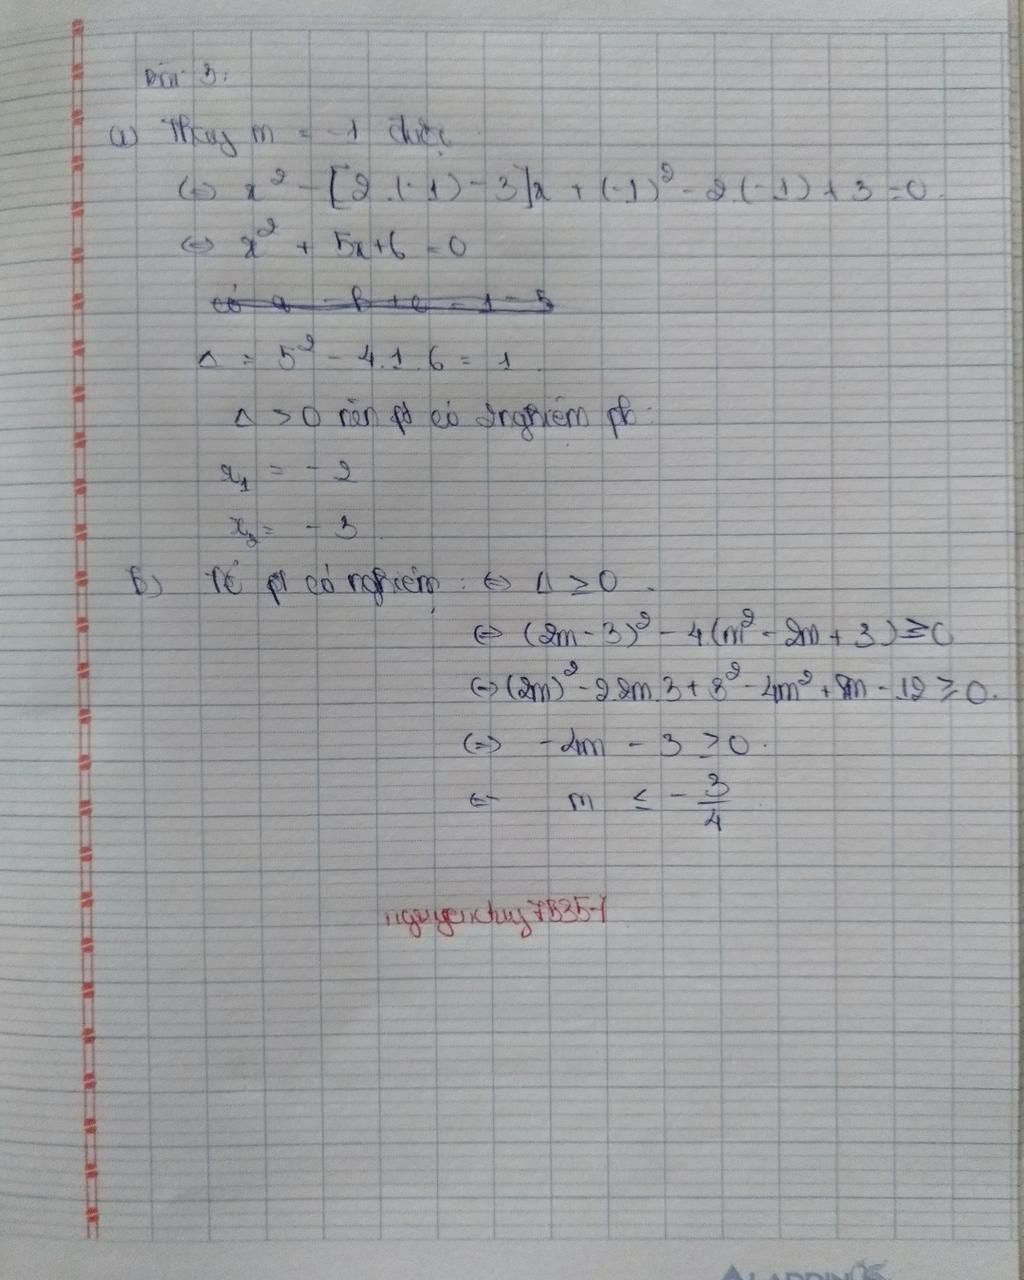 Bài 3:
a) Thay m = -1 được
(=) x² - [2.(-1) - 3]x + (-1)² - 2.(-1) + 3 = 0.
(=) x² + 5x + 6 = 0
có a - b + c = 1 - 5
Δ = 5² - 4.1.6 = 1.
Δ > 0 nên pt có 2 nghiệm pb.
x₁ = -2
x₂ = -3.
b) Để pt có nghiệm: (=) Δ ≥ 0.
(=) (2m - 3)² - 4(m² - 2m + 3) ≥ 0
(=) (2m)² - 2.2m.3 + 3² - 4m² + 8m - 12 ≥ 0.
(=) -4m - 3 ≥ 0.
(=) m ≤ -3/4
nguyenthuy7835-1